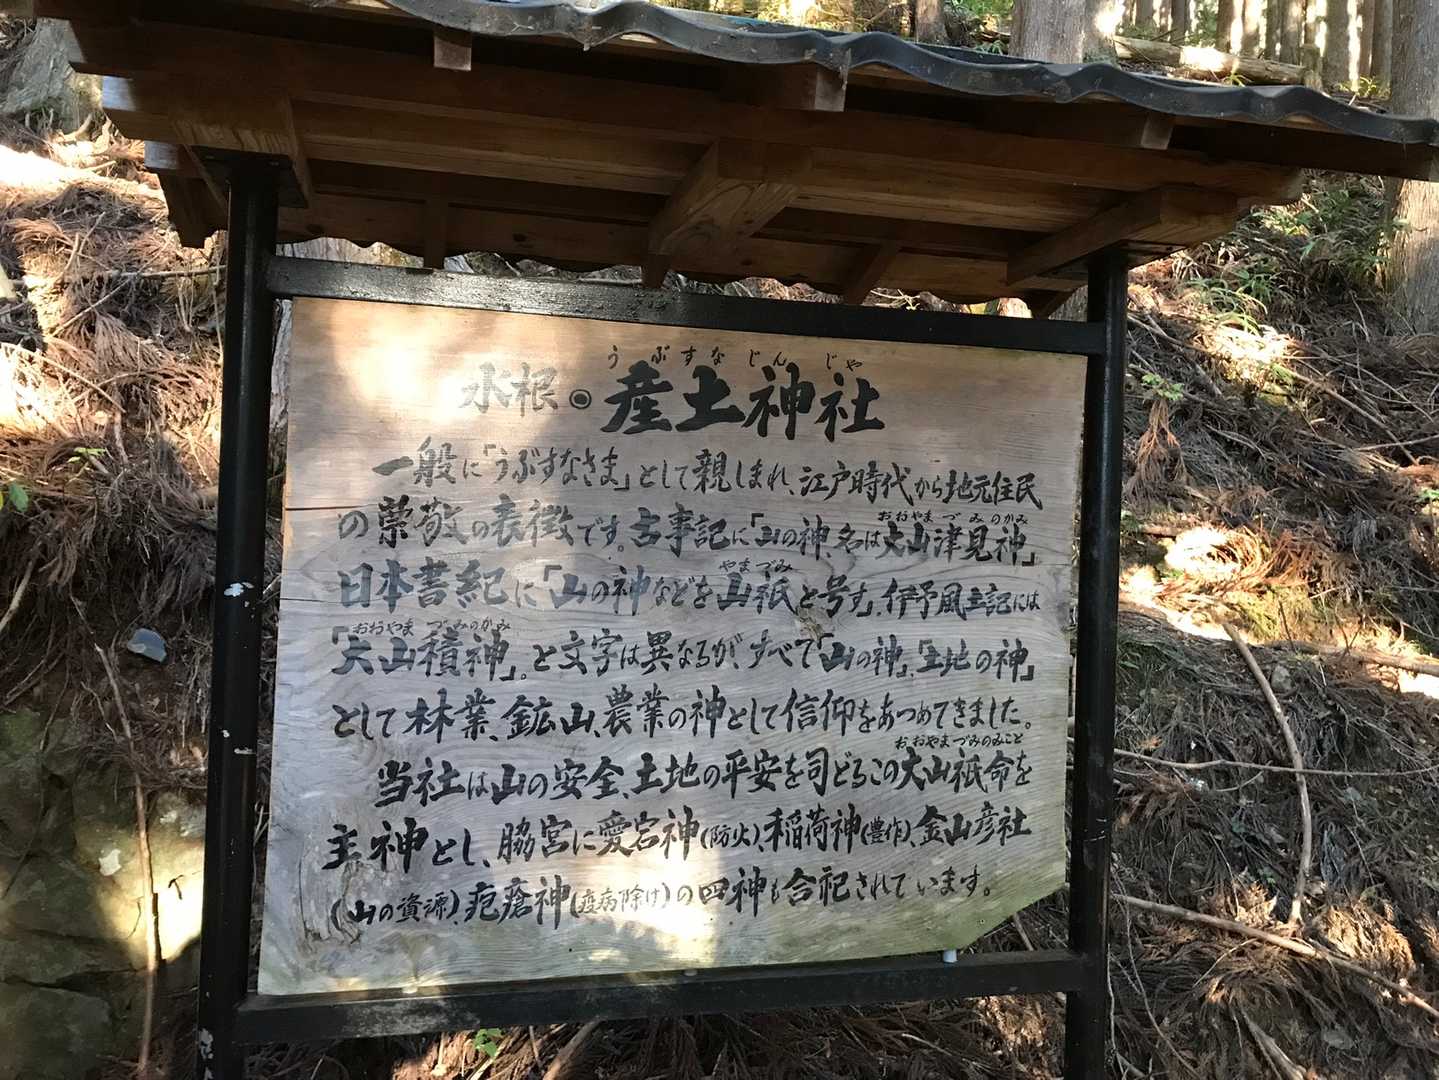 うぶすなじんじゃ
水根◎産土神社
一般に「うぶすなさま」として親しまれ、江戸時代から地元住民
の崇敬の表徴です。古事記に「山の神、名は大山津見神」
おおやまづみのかみ
日本書紀に「山の神などを山祇と号す。伊予風土記には
やまづみ
「大山積神」。と文字は異なるが、すべて「山の神」、「土地の神」
おおやまづみのかみ
として林業、鉱山、農業の神として信仰をあつめてきました。
当社は山の安全、土地の平安を司どるこの大山祇命を
おおやまづみのみこと
主神とし、脇宮に愛宕神(防火)、稲荷神(豊作)、金山彦社
(山の資源)、疱瘡神(疫病除け)の四神も合祀されています。